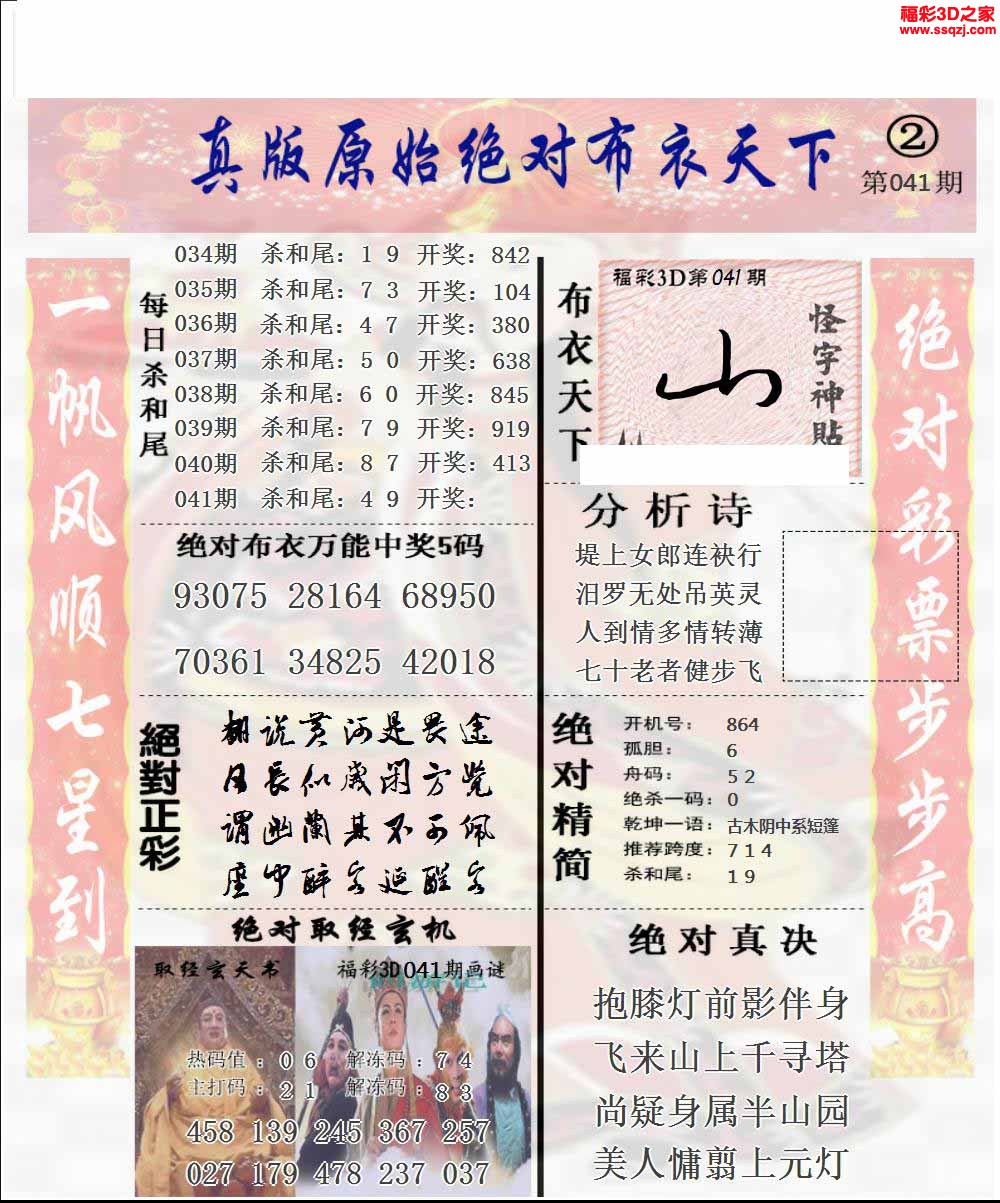 福彩3D之家
www.ssqzj.com
真版原始绝对布衣天下
②
第041期
一帆风顺七星到
每日杀和尾
034期 杀和尾：1 9 开奖：842
035期 杀和尾：7 3 开奖：104
036期 杀和尾：4 7 开奖：380
037期 杀和尾：5 0 开奖：638
038期 杀和尾：6 0 开奖：845
039期 杀和尾：7 9 开奖：919
040期 杀和尾：8 7 开奖：413
041期 杀和尾：4 9 开奖：
绝对布衣万能中奖5码
93075 28164 68950
70361 34825 42018
絕對正彩
翻说黄河是畏途
日长似岁闲方觉
谓幽蘭其不可佩
座中醉客延醒客
绝对取经玄机
取经玄天书
福彩3D041期画谜
热码值：0 6 解冻码：7 4
主打码：2 1 解冻码：8 3
458 139 245 367 257
027 179 478 237 037
布衣天下
福彩3D第041期
山
怪字神貼
分析诗
堤上女郎连袂行
汨罗无处吊英灵
人到情多情转薄
七十老者健步飞
绝对精简
开机号： 864
孤胆： 6
舟码： 5 2
绝杀一码：0
乾坤一语：古木阴中系短篷
推荐跨度：7 1 4
杀和尾： 1 9
绝对真决
抱膝灯前影伴身
飞来山上千寻塔
尚疑身属半山园
美人慵翦上元灯
绝对彩票步步高